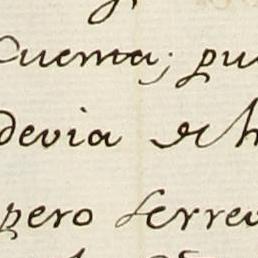 Cuenta; pu
devia de h
pero se rrev